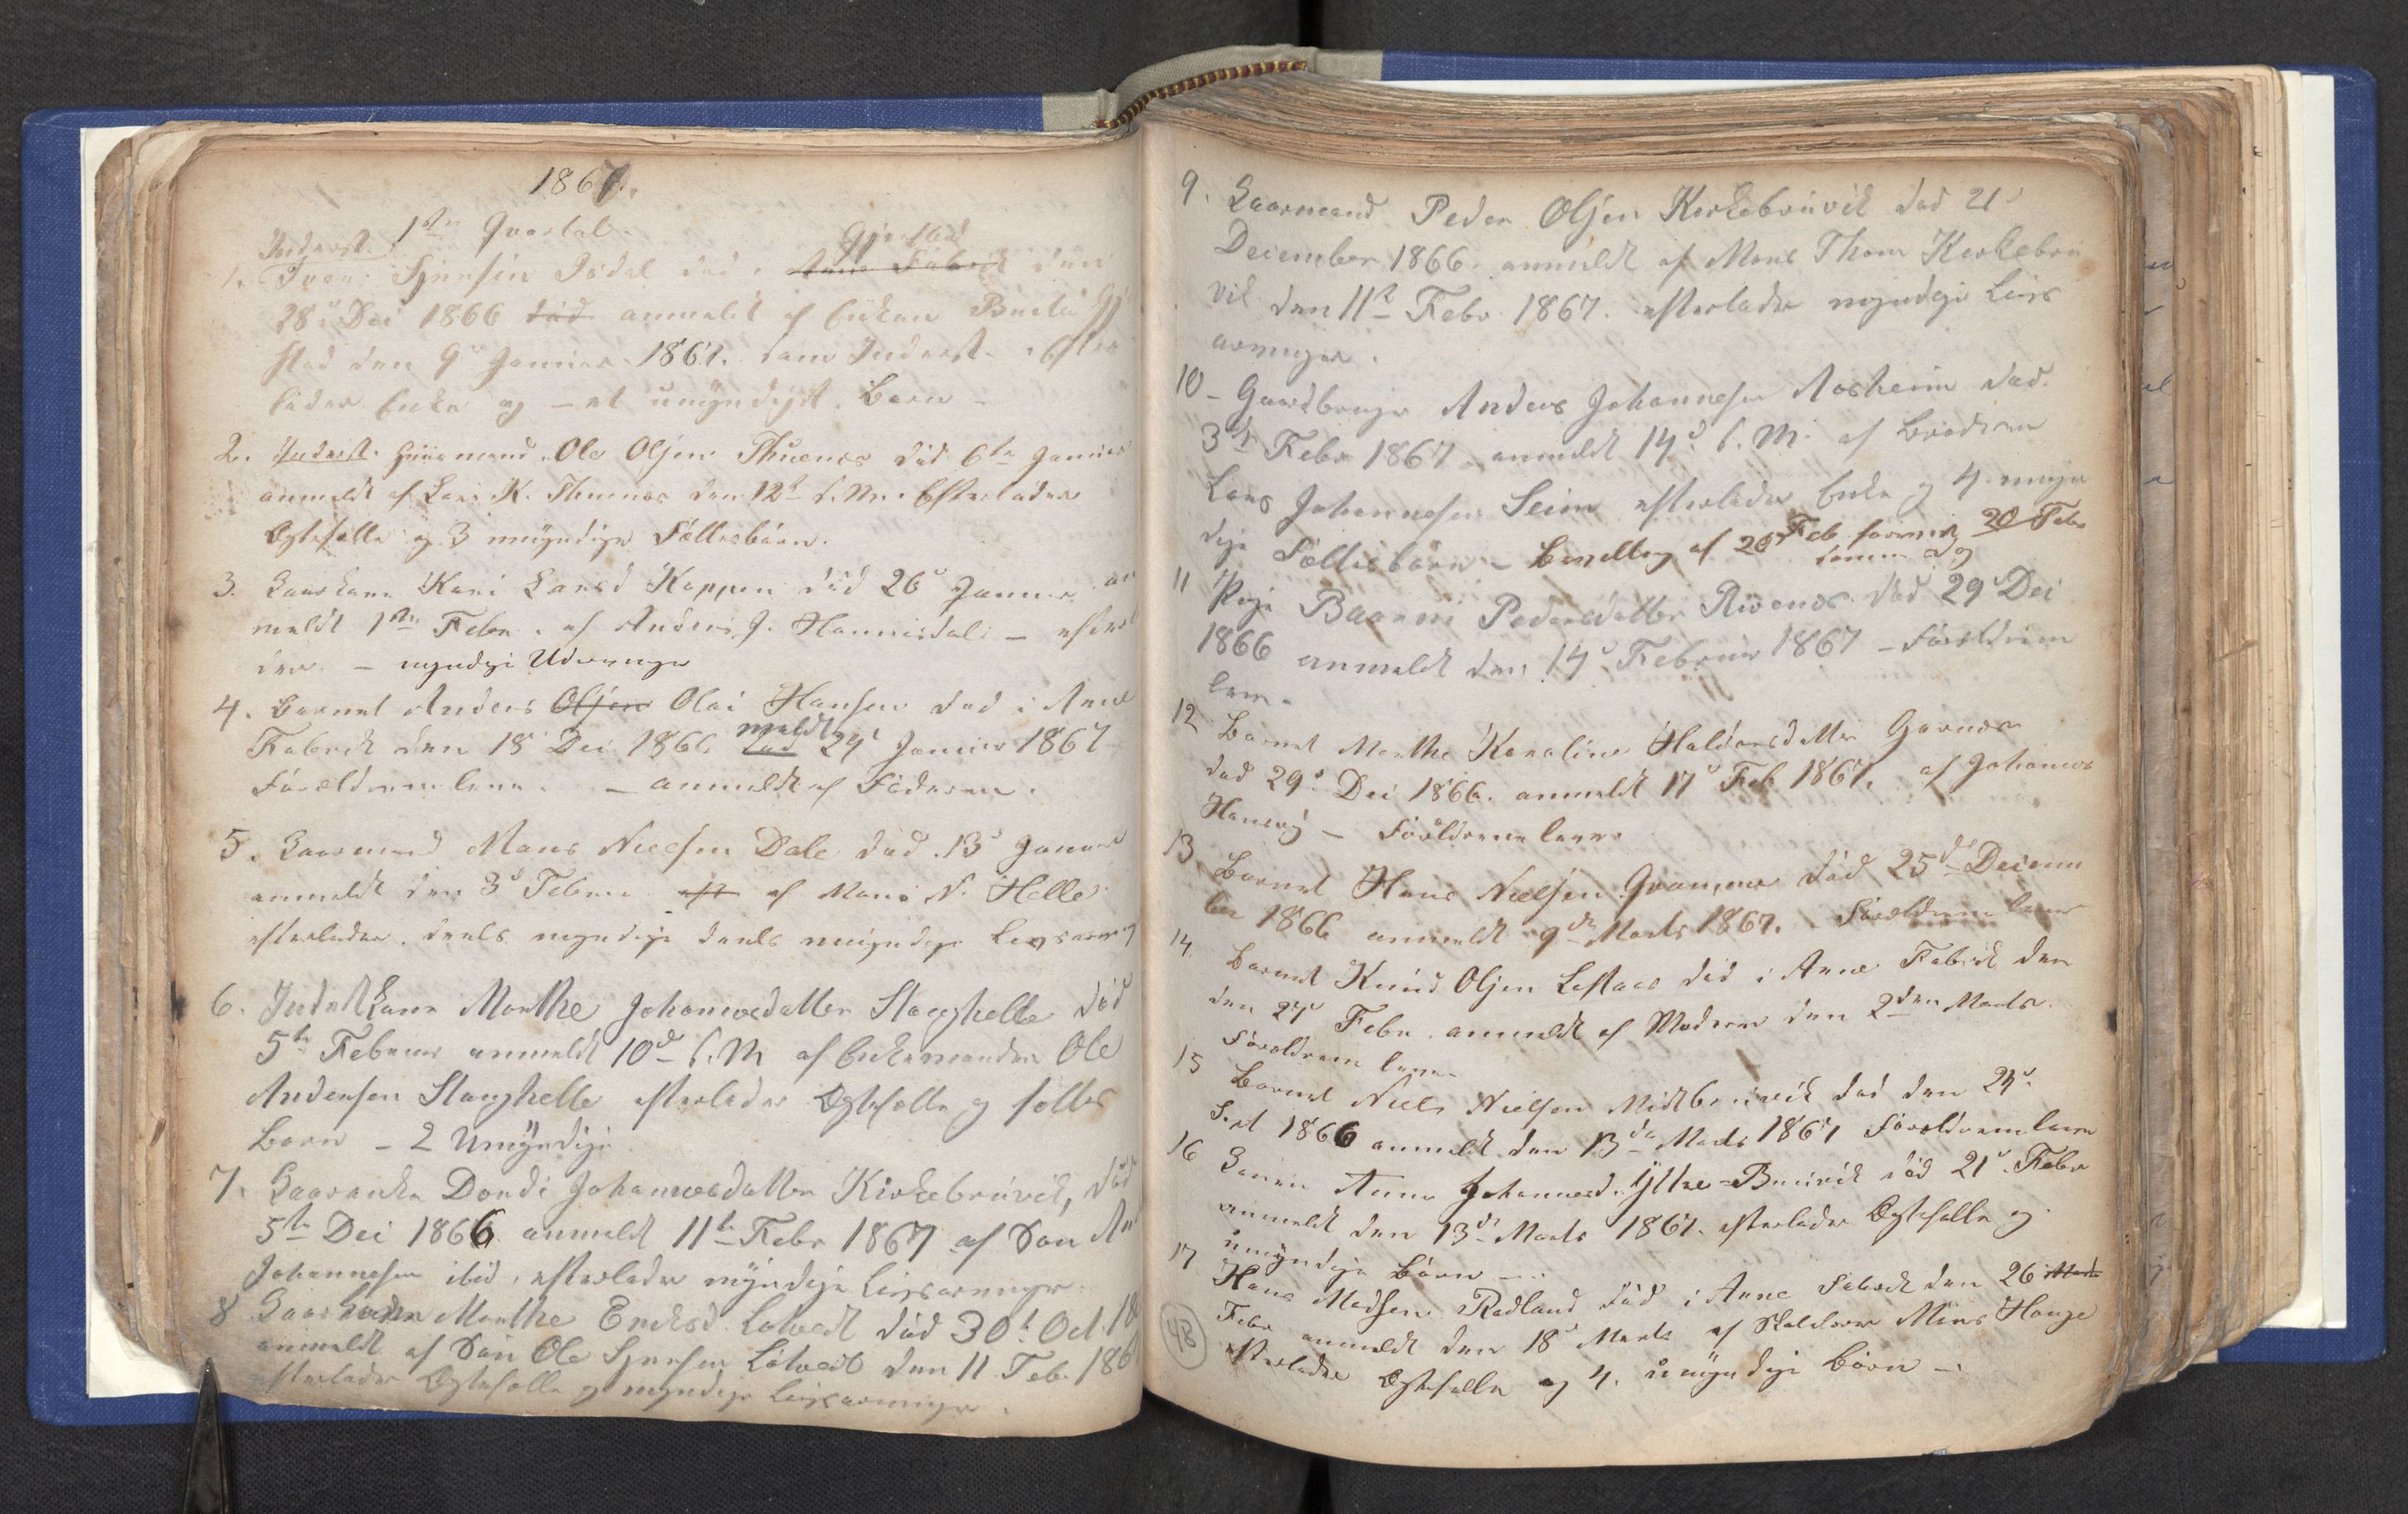 1867.
1ste Qvartal.
Inderst. Gjerstad
1. Iver Sjursen Dødal død i Arne Fabrik den
28de Dec 1866 død anmeldt af Enken Brita Gjer
stad den 9de Januar 1867. som Inderst. efter
lader Enke og - et umyndigt Barn -
2. Inderst. Huusmand Ole Olsen Thuenæs död 6te Januar
anmeldt af Lars K. Thunæs den 12te d. M. Efterlader
Ægtefælle og 3 umyndige Fællesbørn.
3. Kaarkone Kari Larsd Kappen död 26de Januar. an
meldt 1ste Febr. af Anders J. Hannisdal - efterla
der - myndige Udarvinger
4. Barnet Anders Olsen Olai Hansen død i Arne
Fabrik den 18 Dec 1866 død meldt 24de Januar 1867
Forældrene leve. - anmeldt af Faderen.
5. Kaarmand Mons Nielsen Dale død 13de Januar
anmeldt den 3de Februar eft af Mons N. Helle
efterlader deels myndige deels umyndige Livsarving
6. Inderstkone Marthe Johannesdatter Stanghelle død
5te Februar anmeldt 10de d. M af Enkemanden Ole
Andersen Stanghelle efterlader Ægtefælle og fælles
Børn - 2 Umyndige
7. Kaarenke Dordi Johannesdatter Kirkebruvik, død
5te Dec 1866 anmeldt 11te Febr 1867 af Søn
Johannesen ibid, efterlader myndige Livsarvinger.
8 Kaarkonen Marthe Eriksd. Lotvedt død 30te Oct. 18
anmeldt af Søn Ole Sjursen Lotvedt den 11 Feb. 186
efterlader Ægtefælle og myndige Livsarvinger.
9. Kaarmand Peder Olsen Kirkebruvik død 21de
December 1866. anmeldt af Mons Thom Kirkebru
vik den 11te Febr 1867. efterlader myndige Livs
arvinger.
10 - Gaardbruger Anders Johannesen Aasheim død
3die Febr 1867 anmeldt 14de d. M. af Broderen
Lars Johannesen Seim efterlader Enke og 4 umyn
dige Fællesbørn - Bevilling af 20de Feb 20 Febr
samme Dag
11 Pige Baarni Pedersdatter Rivenæs død 29de Dec
1866 anmeldt den 14de Februar 1867 - Forældrene
leve.
12 Barnet Marthe Karoline Haldorsdatter Garnæs
død 29de Dec 1866. anmeldt 17de Feb 1867. af Johannes
Hanevig - Forældrene leve.
13 Barnet Hans Nielsen død 25de Decem
ber 1866 anmeldt 9de Marts 1867. Forældrene leve
14. Barnet Knud Olsen Loftaas død i Arne Fabrik den
den 24de Febr. anmeldt af Moderen den 2den Marts
Forældrene leve.
15 Barnet Niels Nielsen Midtbruvik død den 24de
Sept 1866 anmeldt den 13de Marts 1867 Forældrene leve
16 Konen Anne Johannesd. Yttre-Bruvik død 21de Febr
anmeldt den 13de Marts 1867. efterlader Ægtefælle og
umyndige Børn -
17 Hans Madsen Rødland død i Arne Fabrik den 26 Marts
Febr anmeldt den 18de Marts af Skolelærer Mons Hauge
efterlader Ægtefælle og 4. umyndige Børn -
48